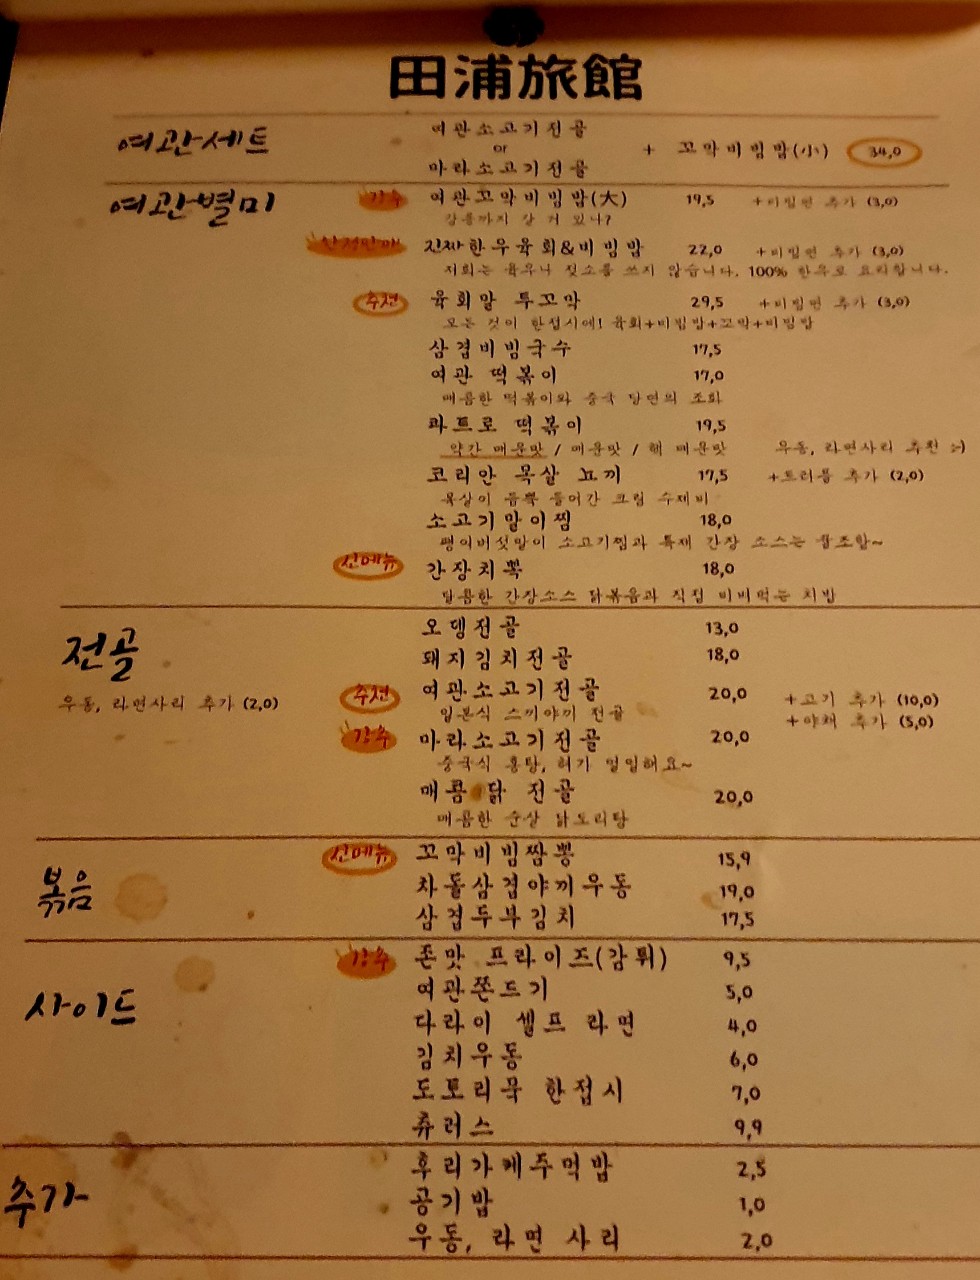 田浦旅館
여관세트
여관소고기전골
or
마라소고기전골
+ 꼬막비빔밥(小) 34,0
여관별미
강추 여관꼬막비빔밥(大) 19,5 +비빔면 추가 (3,0)
강릉까지 갈 거 있나?
한정판매 진짜한우육회&비빔밥 22,0 +비빔면 추가 (3,0)
저희는 육우나 젖소를 쓰지 않습니다. 100% 한우로 요리합니다.
추천 육회말 투꼬막 29,5 +비빔면 추가 (3,0)
모든 것이 한접시에! 육회+비빔밥+꼬막+비빔밥
삼겹비빔국수 17,5
여관 떡볶이 17,0
매콤한 떡볶이와 중국 당면의 조화
파트로 떡볶이 19,5
약간 매운맛 / 매운맛 / 핵 매운맛 우동, 라면사리 추천 :-)
코리안 목살 뇨끼 17,5 +트러플 추가 (2,0)
목살이 듬뿍 들어간 크림 수제비
소고기말이찜 18,0
팽이버섯말이 소고기찜과 특제 간장 소스는 꿀조합~
신메뉴 간장치뽁 18,0
달콤한 간장소스 닭볶음과 직접 비벼먹는 치밥
전골
우동, 라면사리 추가 (2,0)
오뎅전골 13,0
돼지김치전골 18,0
추천 여관소고기전골 20,0 +고기 추가 (10,0)
일본식 스끼야끼 전골 +야채 추가 (5,0)
강추 마라소고기전골 20,0
중국식 홍탕, 허가 얼얼해요~
매콤 닭 전골 20,0
매콤한 순살 닭도리탕
볶음
신메뉴 꼬막비빔짬뽕 15,9
차돌삼겹야끼우동 19,0
삼겹두부김치 17,5
사이드
강추 존맛 프라이즈(감튀) 9,5
여관쫀드기 5,0
다라이 셀프 라면 4,0
김치우동 6,0
도토리묵 한접시 7,0
츄러스 9,9
추가
후리가케주먹밥 2,5
공기밥 1,0
우동, 라면 사리 2,0